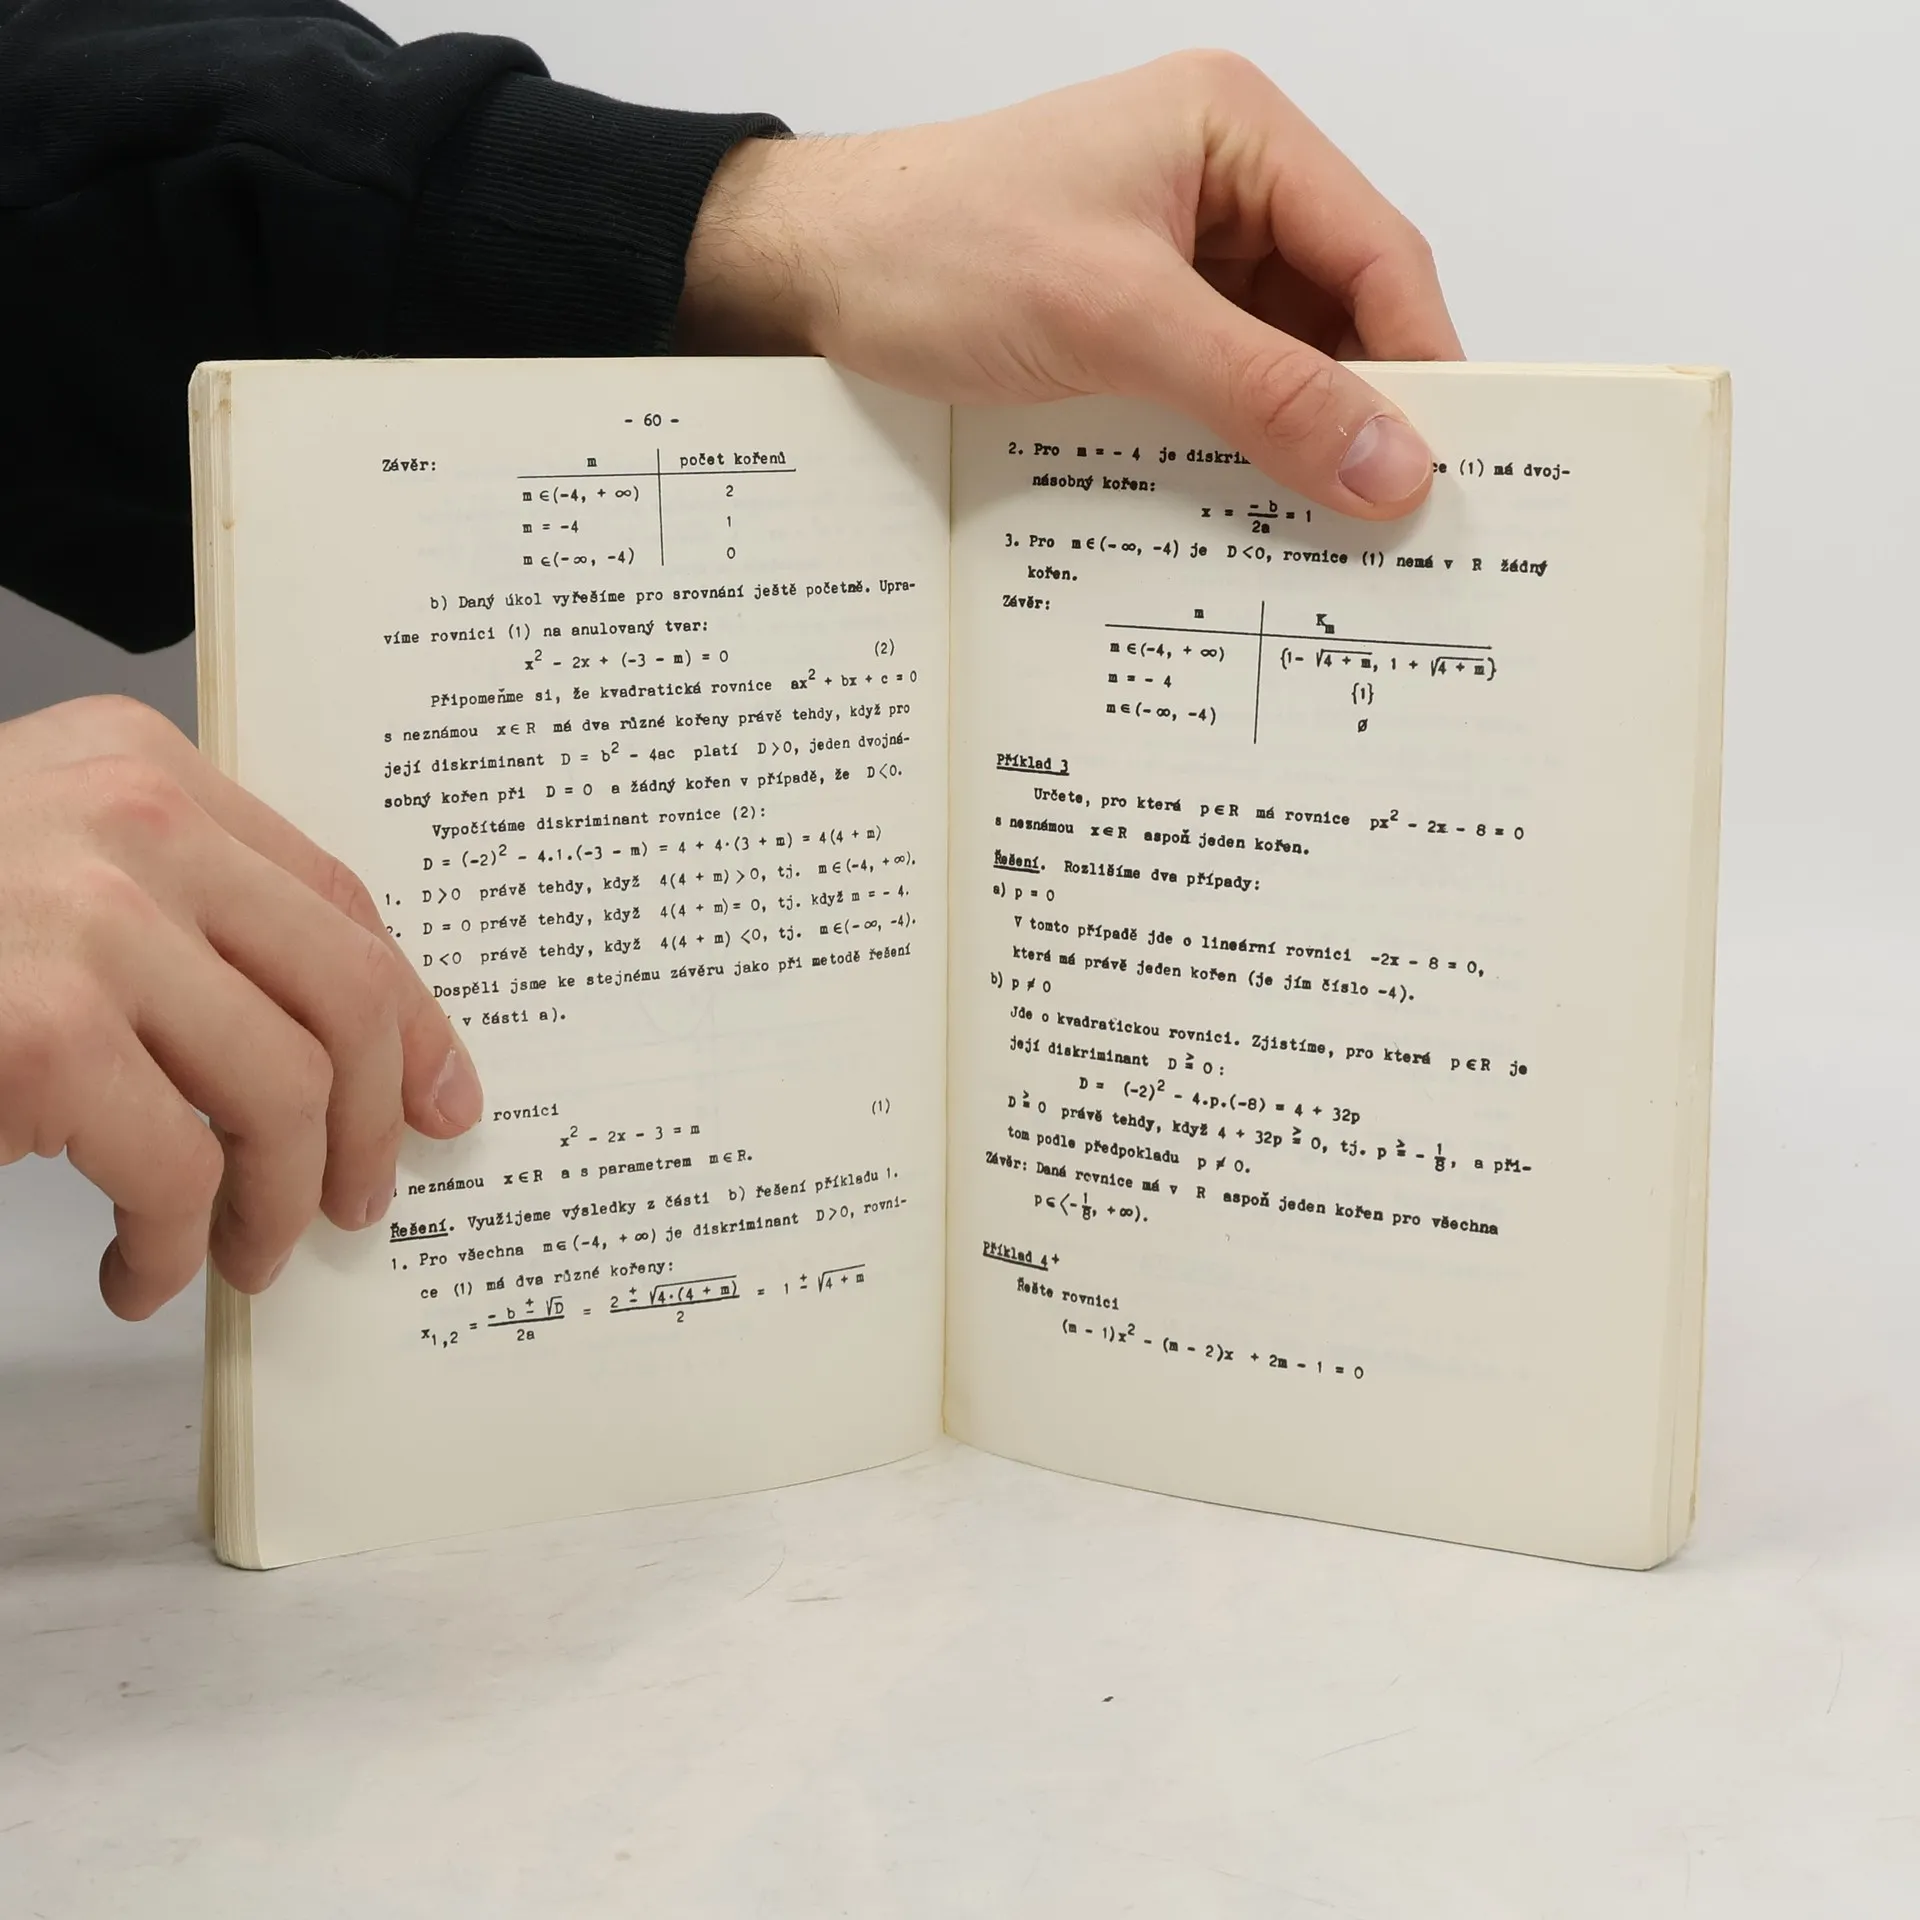 - 60 -
Závěr: m počet kořenů
m ∈(-4, + ∞) 2
m = -4 1
m ∈(-∞, -4) 0
b) Daný úkol vyřešíme pro srovnání ještě početně. Upra-
víme rovnici (1) na anulovaný tvar:
x² - 2x + (-3 - m) = 0 (2)
Připomeňme si, že kvadratická rovnice ax² + bx + c = 0
s neznámou x∈R má dva různé kořeny právě tehdy, když pro
její diskriminant D = b² - 4ac platí D>0, jeden dvojná-
sobný kořen při D = 0 a žádný kořen v případě, že D<0.
Vypočítáme diskriminant rovnice (2):
D = (-2)² - 4.1.(-3 - m) = 4 + 4·(3 + m) = 4(4 + m)
1. D>0 právě tehdy, když 4(4 + m)>0, tj. m∈(-4, +∞).
D = 0 právě tehdy, když 4(4 + m)= 0, tj. když m = - 4.
D<0 právě tehdy, když 4(4 + m) <0, tj. m∈(-∞, -4).
Dospěli jsme ke stejnému závěru jako při metodě řešení
v části a).
rovnici
x² - 2x - 3 = m (1)
neznámou x∈R a s parametrem m∈R.
Řešení. Využijeme výsledky z části b) řešení příkladu 1.
1. Pro všechna m∈(-4, + ∞) je diskriminant D>0, rovni-
ce (1) má dva různé kořeny:
x₁,₂ = (- b ± √D)/2a = (2 ± √4·(4 + m))/2 = 1 ± √4 + m
2. Pro m = - 4 je (1) má dvoj-
násobný kořen:
x = - b/2a = 1
3. Pro m∈(-∞, -4) je D<0, rovnice (1) nemá v R žádný
kořen.
Závěr: m Kₘ
m∈(-4, + ∞) {1- √4 + m, 1 + √4 + m}
m = - 4 {1}
m∈(-∞, -4) ∅
Příklad 3
Určete, pro která p∈R má rovnice px² - 2x - 8 = 0
s neznámou x∈R aspoň jeden kořen.
Řešení. Rozlišíme dva případy:
a) p = 0
V tomto případě jde o lineární rovnici -2x - 8 = 0,
která má právě jeden kořen (je jím číslo -4).
b) p ≠ 0
Jde o kvadratickou rovnici. Zjistíme, pro která p∈R je
její diskriminant D ≧ 0:
D = (-2)² - 4.p.(-8) = 4 + 32p
D ≧ 0 právě tehdy, když 4 + 32p ≧ 0, tj. p ≧ - 1/8, a při-
tom podle předpokladu p ≠ 0.
Závěr: Daná rovnice má v R aspoň jeden kořen pro všechna
p∈⟨-1/8, +∞).
Příklad 4+
Řešte rovnici
(m - 1)x² - (m - 2)x + 2m - 1 = 0